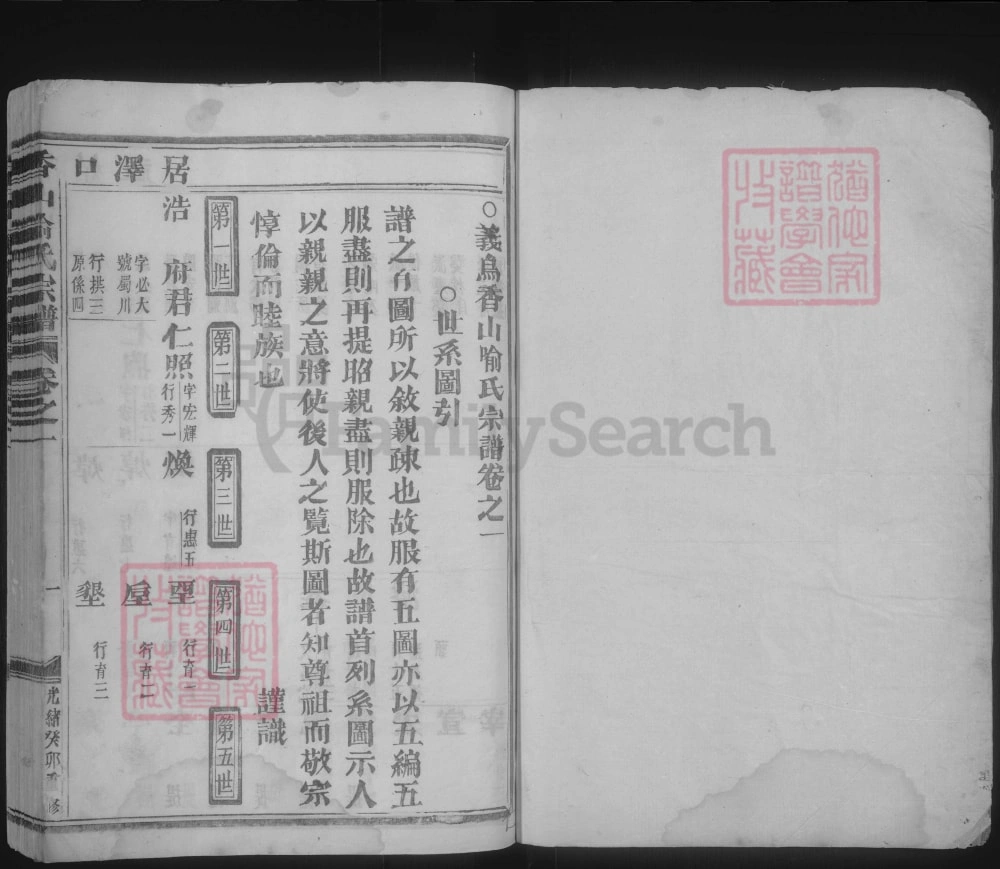 義烏香山喻氏宗譜卷之一
世系圖引
譜之有圖所以敘親疎也故服有五圖亦以五編五
服盡則再提昭親盡則服除也故譜首列系圖示人
以親親之意將使後人之覽斯圖者知尊祖而敬宗
惇倫而睦族也
謹識
第一世
第二世
第三世
第四世
第五世
居浩
府君仁照
字宏輝
行秀一
煥
行惠五
行育一
澤
字必大
號蜀川
垕
行育二
口
行拱三
原係四
墾
行育三
香山喻氏宗譜
卷之一
一
光緒癸卯重修
猶他家
譜學會
收藏
猶他家
譜學會
收藏
FamilySearch